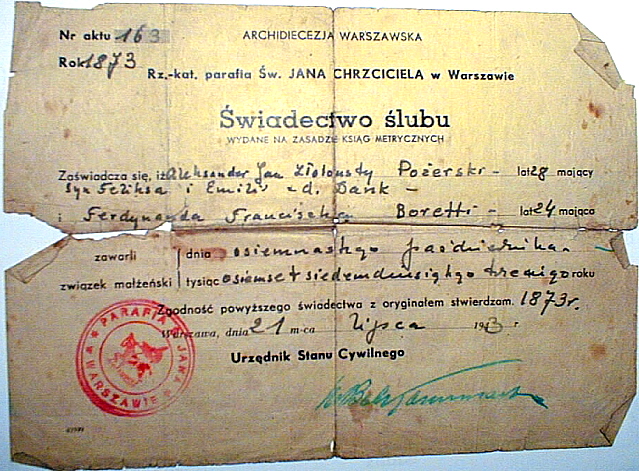 Nr aktu 163 ARCHIDIECEZJA WARSZAWSKA
Rok 1873 Rz.-kat. parafia Św. JANA CHRZCICIELA w Warszawie
Świadectwo ślubu
WYDANE NA ZASADZIE KSIĄG METRYCZNYCH
Zaświadcza się, iż Aleksander Jan Pożerski - lat 28 mający
syn Feliksa i Emilii - d. Dank -
i Ferdynanda Franciszka Boretti - lat 24 mająca
zawarli dnia osiemnastego października
związek małżeński tysiąc osiemset siedemdziesiątego trzeciego roku
Zgodność powyższego świadectwa z oryginałem stwierdzam. 1873r.
Warszawa, dnia 21 m-ca lipca 1943 r
Urzędnik Stanu Cywilnego
PARAFIA Ś. JANA WARSZAWIE